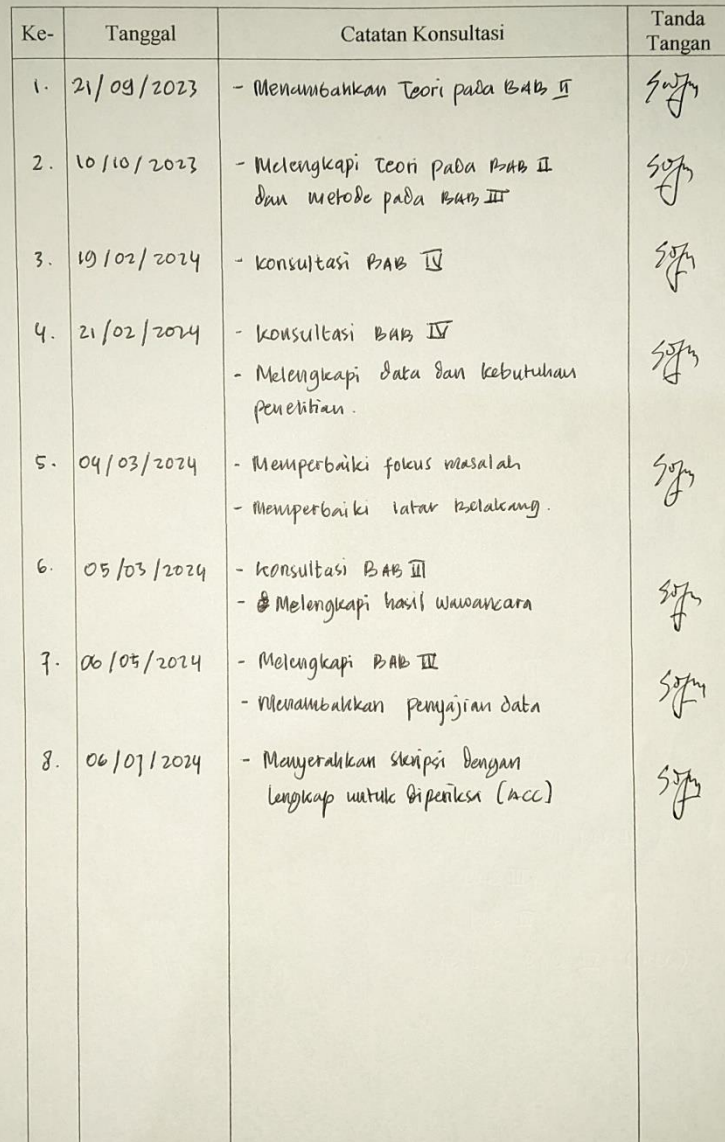 Ke- Tanggal Catatan Konsultasi Tanda Tangan
1. 21/09/2023 - Menambahkan Teori pada BAB II
2. 10/10/2023 - Melengkapi Teori pada BAB II
dan metode pada BAB III
3. 19/02/2024 - Konsultasi BAB IV
4. 21/02/2024 - Konsultasi BAB IV
- Melengkapi data dan kebutuhan
penelitian.
5. 04/03/2024 - Memperbaiki fokus masalah
- Memperbaiki latar Belakang.
6. 05/03/2024 - Konsultasi BAB III
- Melengkapi hasil wawancara
7. 06/05/2024 - Melengkapi BAB IV
- Menambahkan penyajian data
8. 06/07/2024 - Menyerahkan skripsi dengan
lengkap untuk diperiksa (ACC)